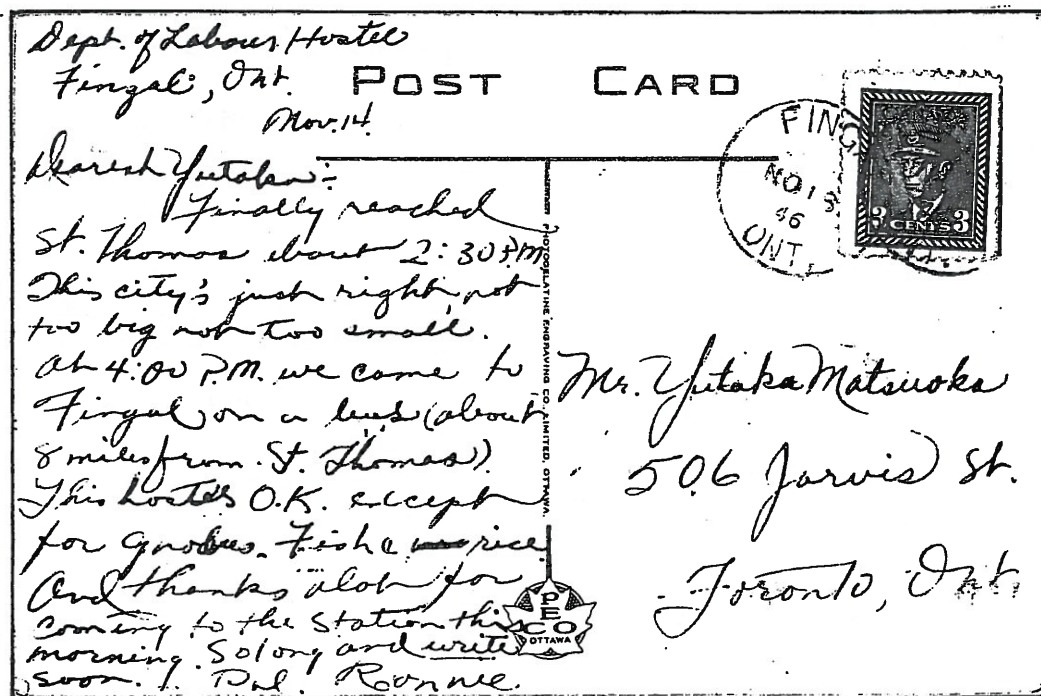 Dept. of Labour Hostel
Fingal, Ont.
Nov. 14.
POST CARD
Dearest Yutaka:-
Finally reached
St. Thomas about 2:30 P.M.
This city's just right, not
too big nor too small.
At 4:00 P.M. we came to
Fingal on a bus (about
8 miles from St. Thomas).
This hostel's O.K. except
for Fish & rice
And thanks alot for
coming to the station this
morning. So long and write
soon. Pal. Ronnie.
PHOTOGELATINE ENGRAVING CO. LIMITED, OTTAWA.
PECO
OTTAWA
FINGAL
NO 13
46
ONT.
CANADA
3 CENTS 3
Mr. Yutaka Matsuoka
506 Jarvis St.
Toronto, Ont